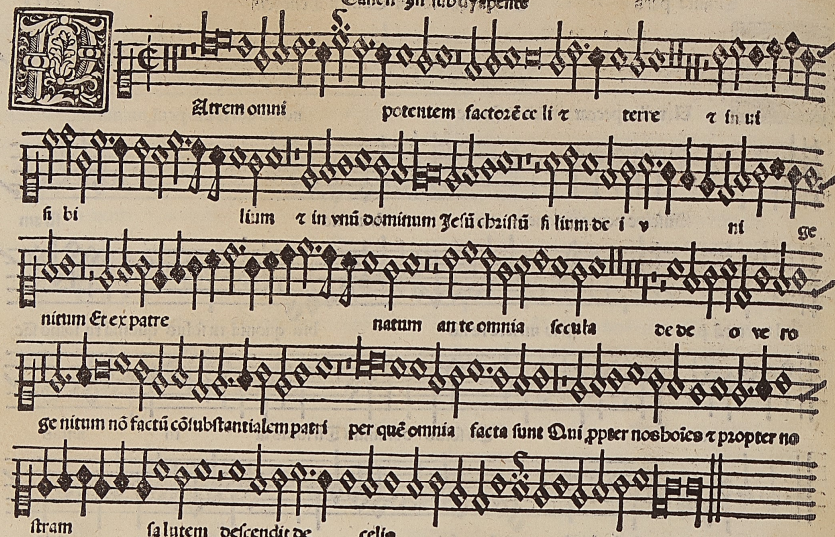 Canon In subdyapente
Atrem omni potentem factorē ce li ⁊ terre ⁊ in ui
si bi lium ⁊ in vnū dominum Jesū christū fi lium de i v ni ge
nitum Et ex patre natum an te omnia secula de de o ve ro
ge nitum nō factū cōsubstantialem patri per quē omnia facta sunt Qui ꝓpter nos hoīes ⁊ propter no
stram sa lutem descendit de celis